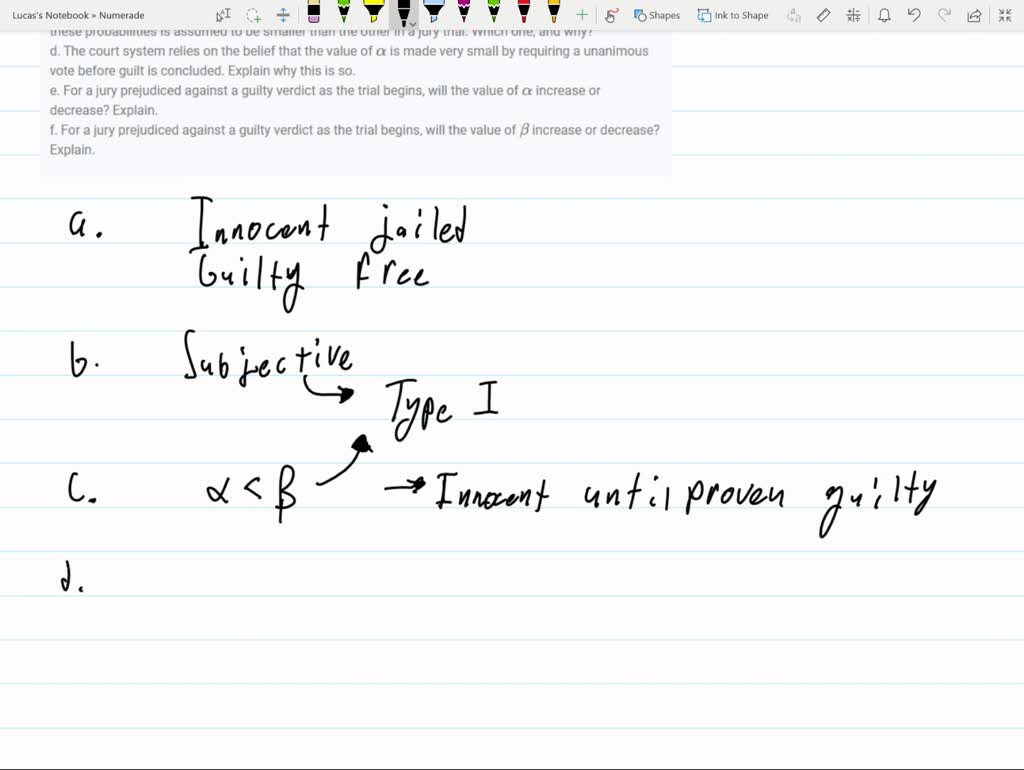 Lucas's Notebook » Numerade
Shapes
Ink to Shape
these probabilities is assumed to be smaller than the other in a jury trial. Which one, and why?
d. The court system relies on the belief that the value of α is made very small by requiring a unanimous
vote before guilt is concluded. Explain why this is so.
e. For a jury prejudiced against a guilty verdict as the trial begins, will the value of α increase or
decrease? Explain.
f. For a jury prejudiced against a guilty verdict as the trial begins, will the value of β increase or decrease?
Explain.
a. Innocent jailed
Guilty free
b. Subjective
Type I
c. α < β → Innocent until proven guilty
d.